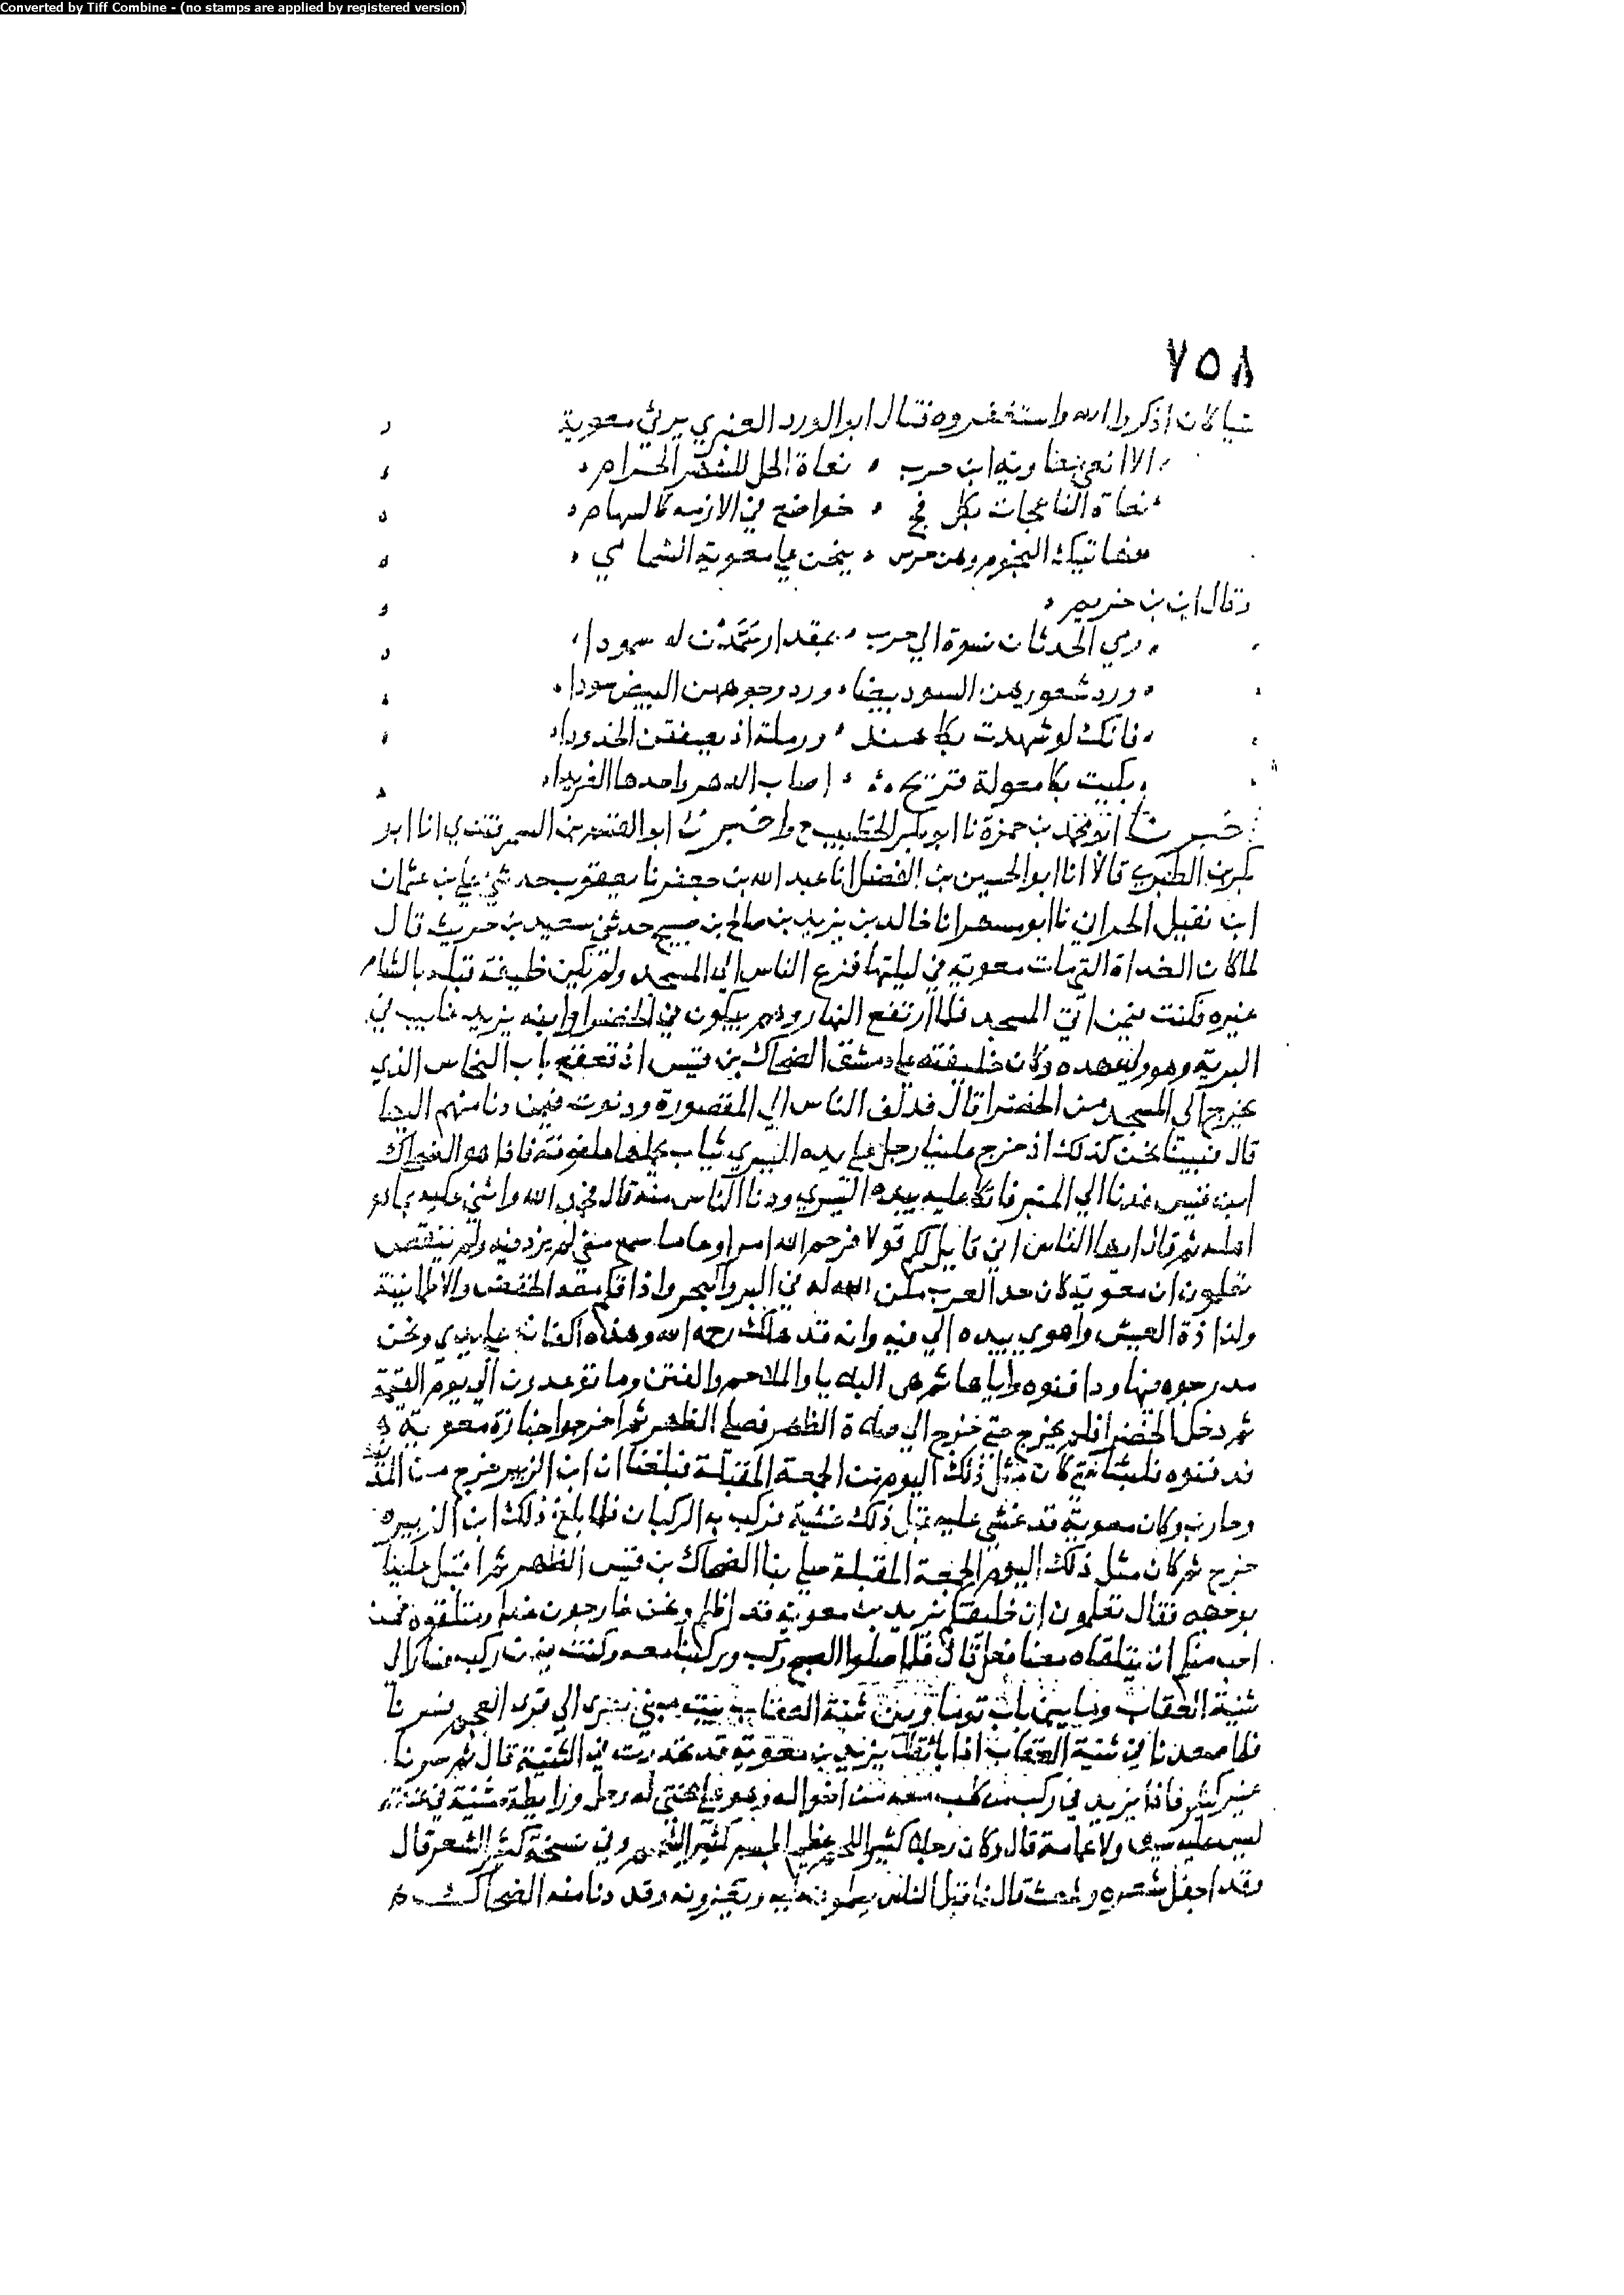 Converted by Tiff Combine - (no stamps are applied by registered version)
٧٥٨
كان اذكروا الله واستغفروه فقال ابو الورد العنبري يرثي معوية
الا انعى معاوية ابن حرب نعاة الحل للشهر الحرام
نعاة الناعجات بكل فج خواضع في الازمة كالسهام
النجوم وهن خرس ينحن على معوية الشامي
وقال ابن خريم
رمى الحدثان نسوة ال حرب بمقدار سمدن له سمودا
ورد شعورهن السود بيضا ورد وجوههن البيض سودا
فانك لو شهدت بكا هند ورملة اذ يصفقن الخدودا
بكيت بكا معولة قريحة اصاب الدهر واحدها الفريدا
خبرنا ابو محمد بن حمزة نا ابو بكر الخطيب ح واخبرنا ابو القسم بن السمرقندي انا ابو
بكر بن الطبري قالا انا ابو الحسين بن الفضل انا عبد الله بن جعفر نا يعقوب حدثني علي بن عثمان
ابن نفيل الحراني نا ابو مسهر نا خالد بن يزيد بن صالح بن صبيح حدثني سعيد بن حريث قال
لما كان الغداة التي مات معوية في ليلتها فزع الناس الى المسجد ولم يكن خليفة قبله بالشام
غيره فكنت فيمن اتى المسجد فلما ارتفع النهار وهم يبكون في الخضرا وابنه يزيد غايب في
البرية وهو ولي عهده وكان خليفته على دمشق الضحاك بن قيس اذ تقعقع باب النحاس الذي
يخرج الى المسجد من الخضرا قال فدلف الناس الى المقصورة ودنوت فيمن دنا منهم اليها
قال فبينا نحن كذلك اذ خرج علينا رجل على يده اليسرى ثياب ملفوفة فاذا هو الضحاك
ابن قيس فدنا الى المنبر فاتكا عليه بيده اليسرى ودنا الناس منه قال فحمد الله واثنى عليه بما هو
اهله ثم قال ايها الناس اني قايل لكم قولا فرحم الله امرا وعا ما سمع مني لم يزد فيه ولم ينتقص
تعلمون ان معوية كان حد العرب مكن الله له في البر والبحر واذاقكم معه الخفض والاطمانينة
ولذاذة العيش واهوى بيده الى فيه وانه قد هلك رحمه الله وهذه اكفانه على يدي ونحن
مدرجوه فيها ودافنوه واياها ثم هي البلايا والملاحم والفتن وما توعدون الى يوم القيمة
ثم دخل الخضرا فلم يخرج حتى خرج الى صلاة الظهر فصلى الظهر ثم اخرجوا جنازة معوية
فدفنوه فلبثنا حتى كان مثل ذلك اليوم من الجمعة المقبلة فبلغنا ان ابن الزبير خرج من المدينة
وحارب وكان معوية قد غشي عليه قبل ذلك غشية فركب به الركبان فلما بلغ ذلك ابن الزبير
خرج ثم كان مثل ذلك اليوم الجمعة المقبلة صلى بنا الضحاك بن قيس الظهر ثم اقبل علينا
بوجهه فقال تعلمون ان خليفتكم يزيد بن معوية قد اظلكم ونحن خارجون غدا ومتلقوه فمن
احب منكم ان يتلقاه معنا فعل قال فلما صلوا الصبح ركب وركبنا معه وكنت فيمن ركب فسار الى
ثنية العقاب وما بين باب توما وبين ثنية العقاب بيت مبني الى قرى العجم فسرنا
فلما صعدنا في ثنية العقاب اذا باثقال يزيد بن معوية قد تحدرت في الثنية قال ثم سرنا
غير كثير فاذا يزيد في ركب من كلب معه من اخواله وهو على بختي له رحل ورايطة مثنية في عنقه
ليس عليه سيف ولا عمامة قال وكان رجلا كثير اللحم عظيم الجسم كثير الشحم وفي نسخة كثير الشعر قال
وقد اجفل شعره وشعث قال فاقبل الناس يسلمون عليه ويعزونه وقد دنا منه الضحاك